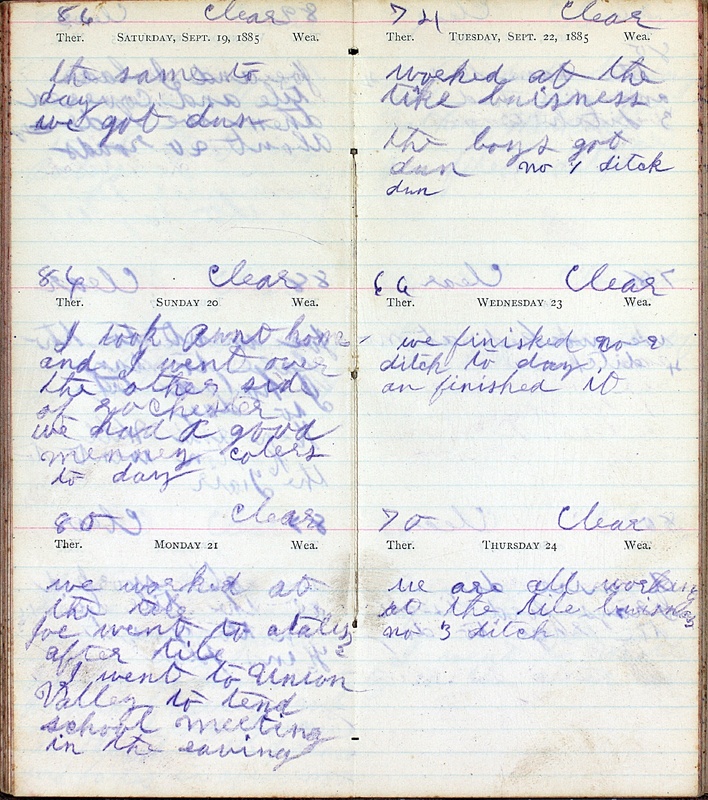 86 Clear
Ther. SATURDAY, SEPT. 19, 1885 Wea.
the same to
day
we got dun
84 Clear
Ther. SUNDAY 20 Wea.
I took Aunt hom
and I went over
the other side
of rochester
we had a good
menney colers
to day
80 Clear
Ther. MONDAY 21 Wea.
we worked at
the tile
Joe went to
after tile
I went to Union
Valley to tend
school meeting
in the eaving
74 Clear
Ther. TUESDAY, SEPT. 22, 1885 Wea.
worked at the
tike buisness
the boys got
dun no 1 ditch
dun
66 Clear
Ther. WEDNESDAY 23 Wea.
we finished no 2
ditch to day
an finished it
70 Clear
Ther. THURSDAY 24 Wea.
we are all working
at the tile
no 3 ditch